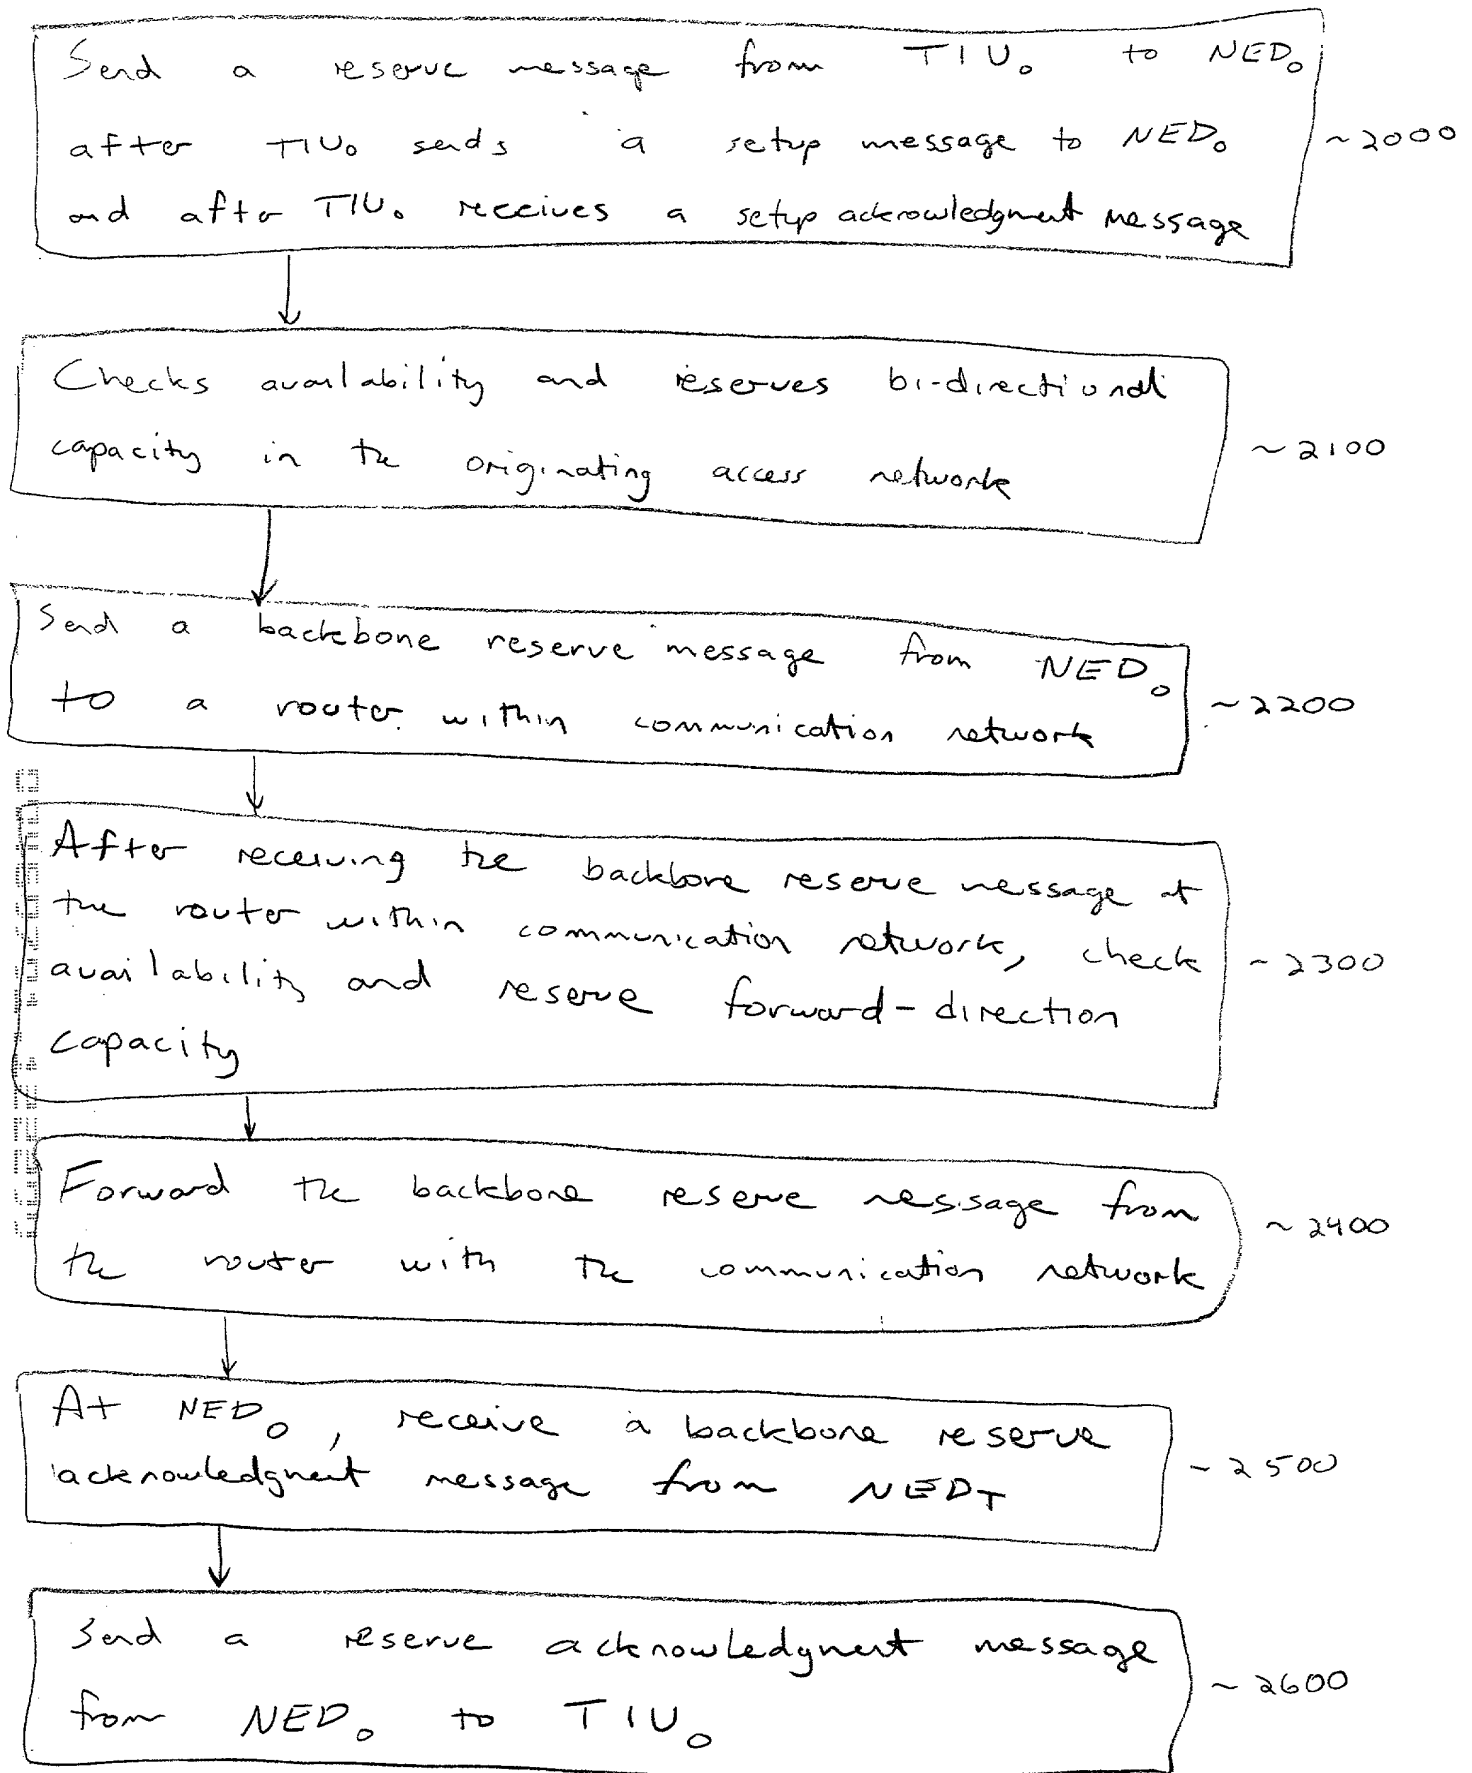 Send a reserve message from TIU₀ to NED₀
after TIU₀ sends a setup message to NED₀
and after TIU₀ receives a setup acknowledgment message
~2000
Checks availability and reserves bi-directional
capacity in the originating access network
~2100
Send a backbone reserve message from NED₀
to a router within communication network
~2200
After receiving the backbone reserve message at
the router within communication network, check
availability and reserve forward-direction
capacity
~2300
Forward the backbone reserve message from
the router with the communication network
~2400
At NED₀, receive a backbone reserve
acknowledgment message from NEDT
~2500
Send a reserve acknowledgment message
from NED₀ to TIU₀
~2600